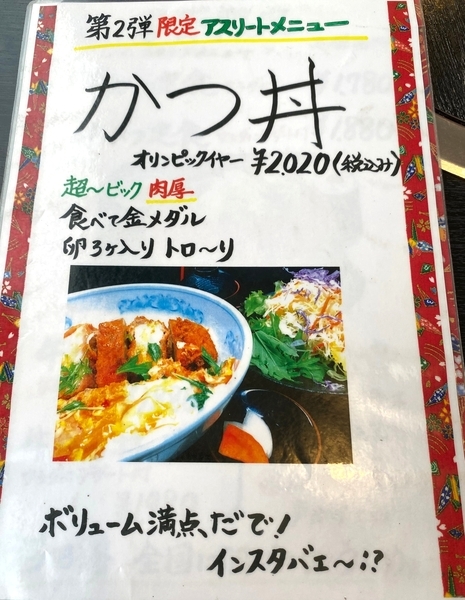 第2弾 限定 アスリートメニュー
かつ丼
オリンピックイヤー ¥2,020(税込み)
超〜ビック 肉厚
食べて金メダル
卵3ヶ入り トロ〜り
ボリューム満点、だで!
インスタバエ〜!?